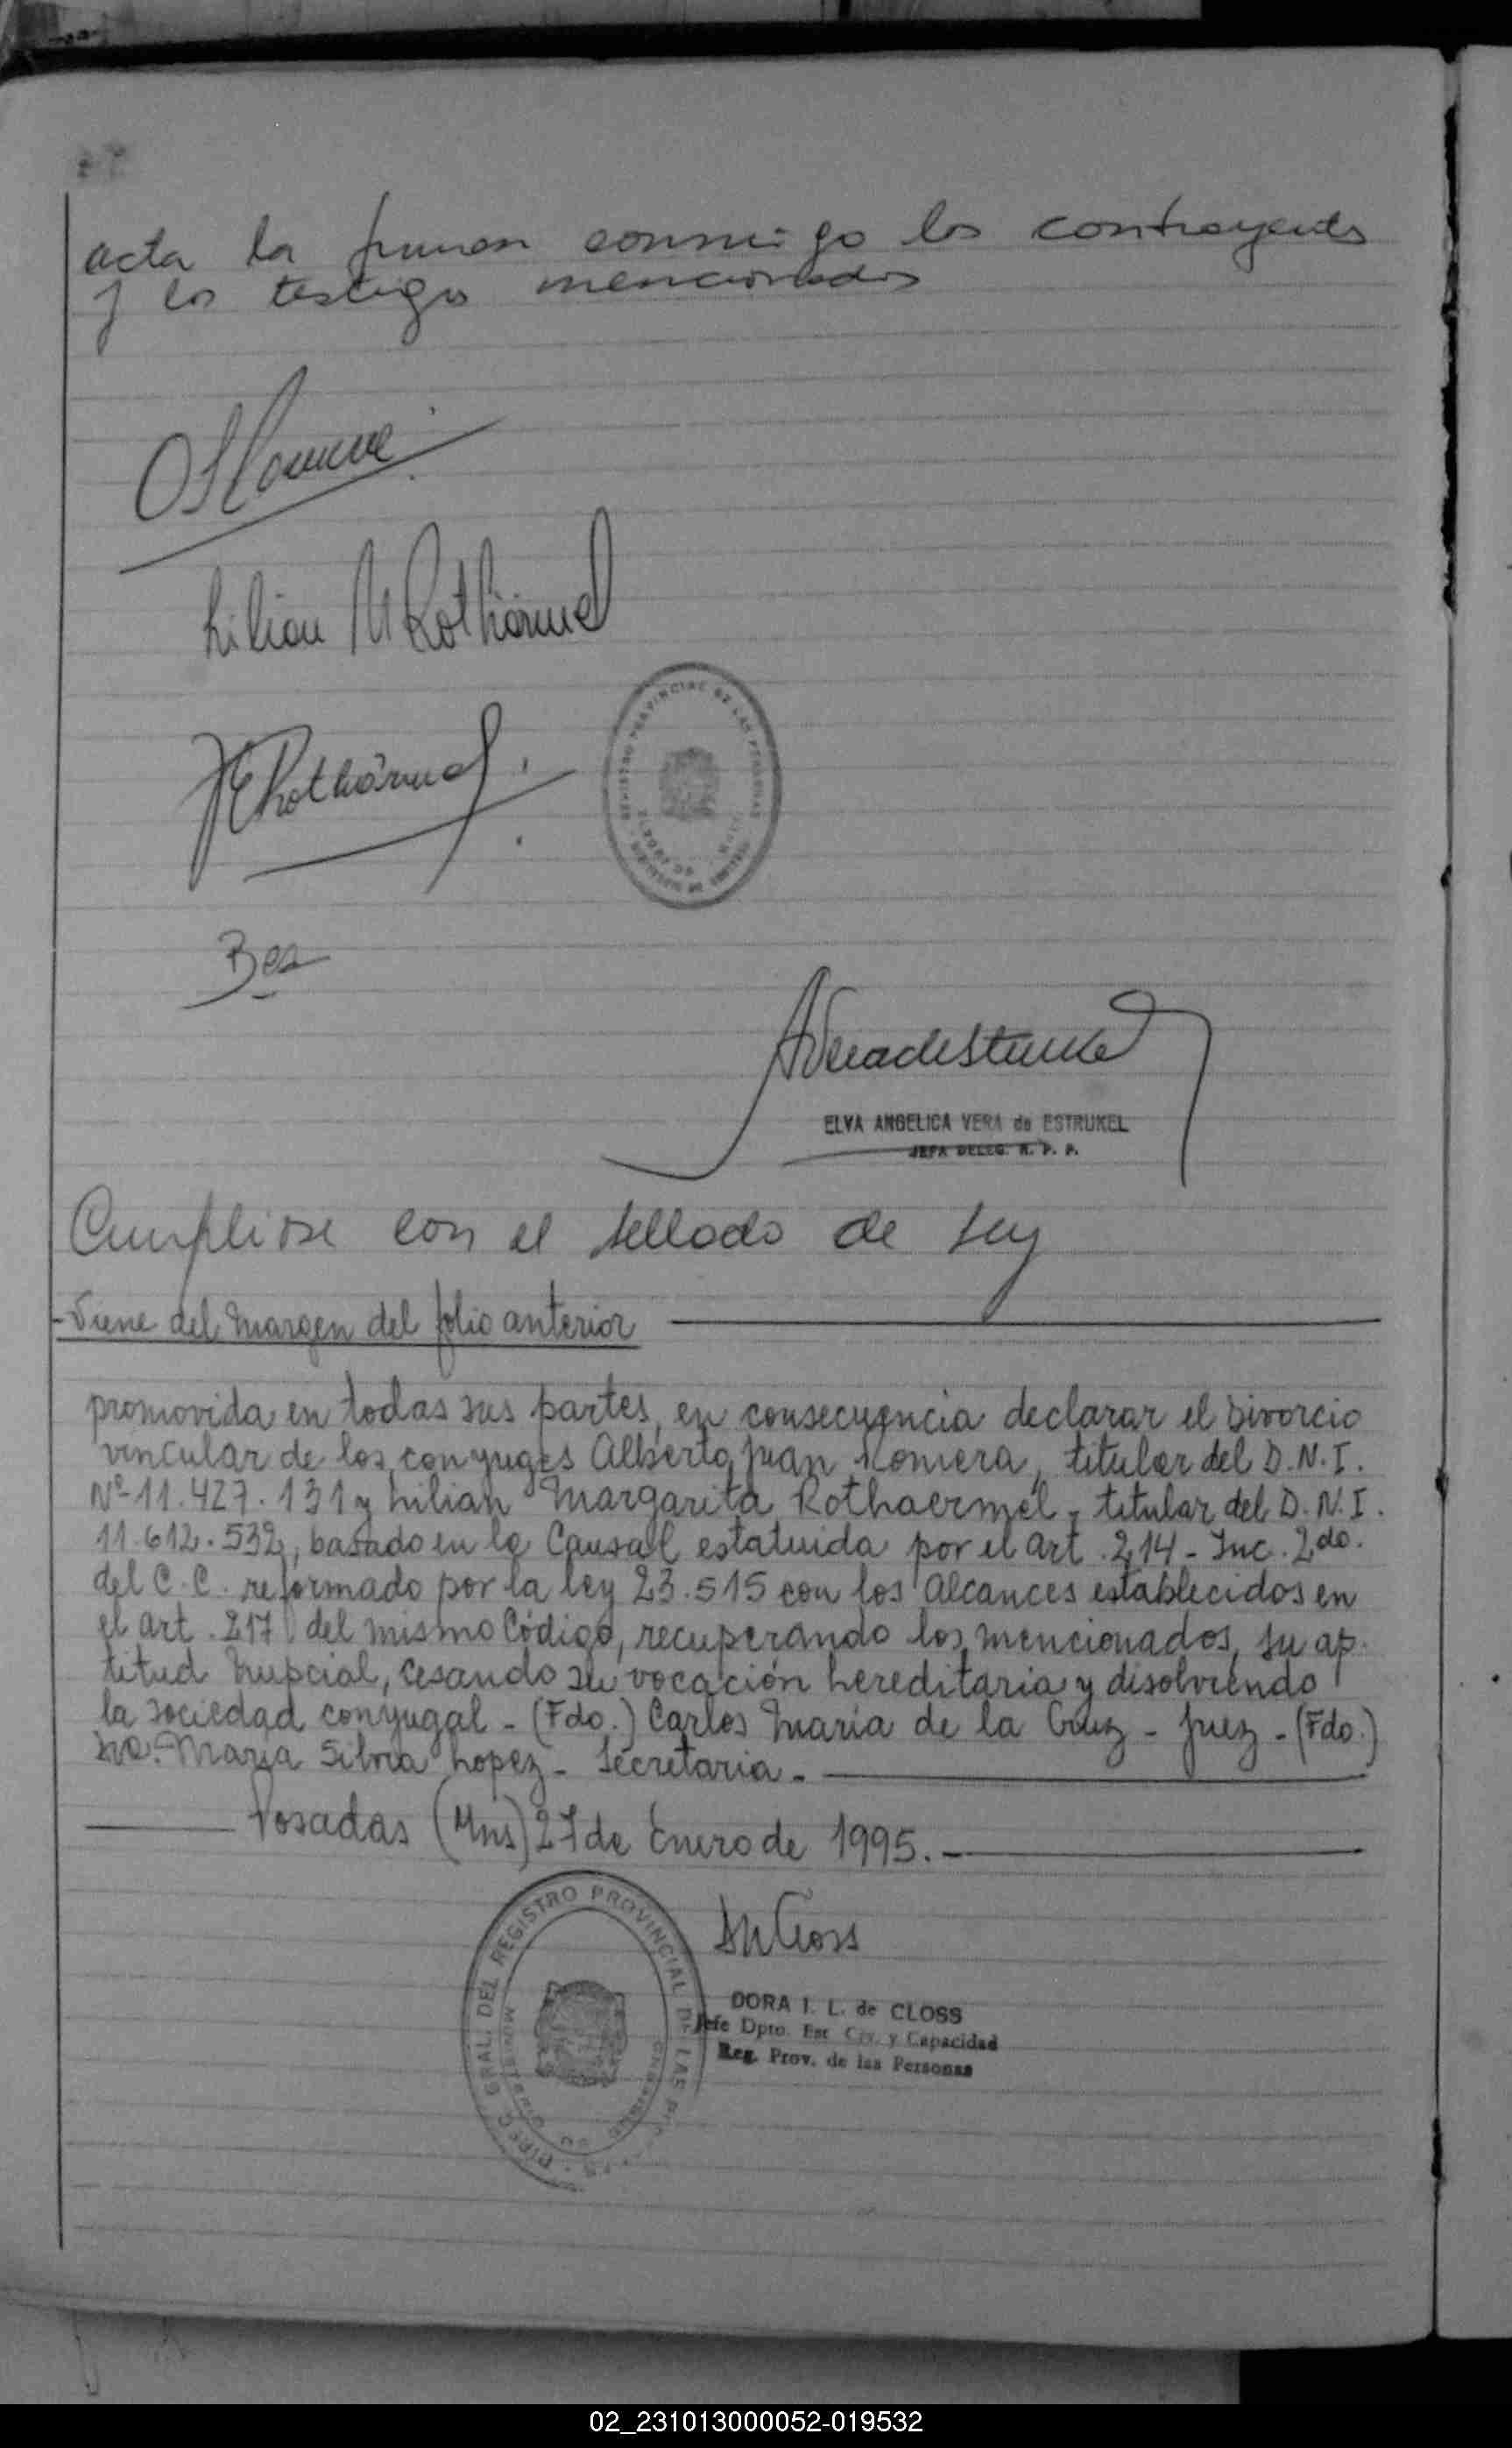 acta la firman conmigo los contrayentes
y los testigos mencionados
Lilian M Rothärmel
Rothärmel
REGISTRO PROVINCIAL DE LAS PERSONAS
ELVA ANGELICA VERA de ESTRUKEL
JEFA DELEG. R. P. P.
Cumpliose con el sellado de Ley
-Viene del Margen del folio anterior
promovida en todas sus partes, en consecuencia declarar el Divorcio
vincular de los conyuges Alberto Juan Romera, titular del D.N.I.
Nº 11.427.131 y Lilian Margarita Rothaermel, titular del D.N.I.
11.612.532, basado en la Causal estatuida por el art. 214 - Inc. 2do.
del C.C. reformado por la ley 23.515 con los Alcances establecidos en
el art. 217 del mismo Código, recuperando los mencionados, su ap-
titud Nupcial, cesando su vocación hereditaria y disolviendo
la sociedad conyugal - (Fdo.) Carlos María de la Cruz - Juez - (Fdo.)
María Silvia Lopez - Secretaria -
Posadas (Mns) 27 de Enero de 1995.-
DIREC. GRAL. DEL REGISTRO PROVINCIAL DE LAS
MINISTERIO DE GOBIERNO
DORA I. L. de CLOSS
Jefe Dpto. Est. Civ. y Capacidad
Reg. Prov. de las Personas
02_231013000052-019532